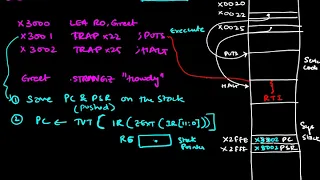 x3000 LEA R0, Greet
x3001 TRAP x22 ; PUTS
x3002 TRAP x25 ; HALT
Execute
Greet .STRINGZ "Howdy"
① Save PC & PSR on the Stack
(pushed)
② PC ← TVT [ IR(ZEXT(IR[11:0])) ]
R6
Stack
Pointer
x0020
x0022
x0025
PUTS
HALT
RTI
Code
Sys
x2FFE x3002 PC
x2FFF x8002 PSR